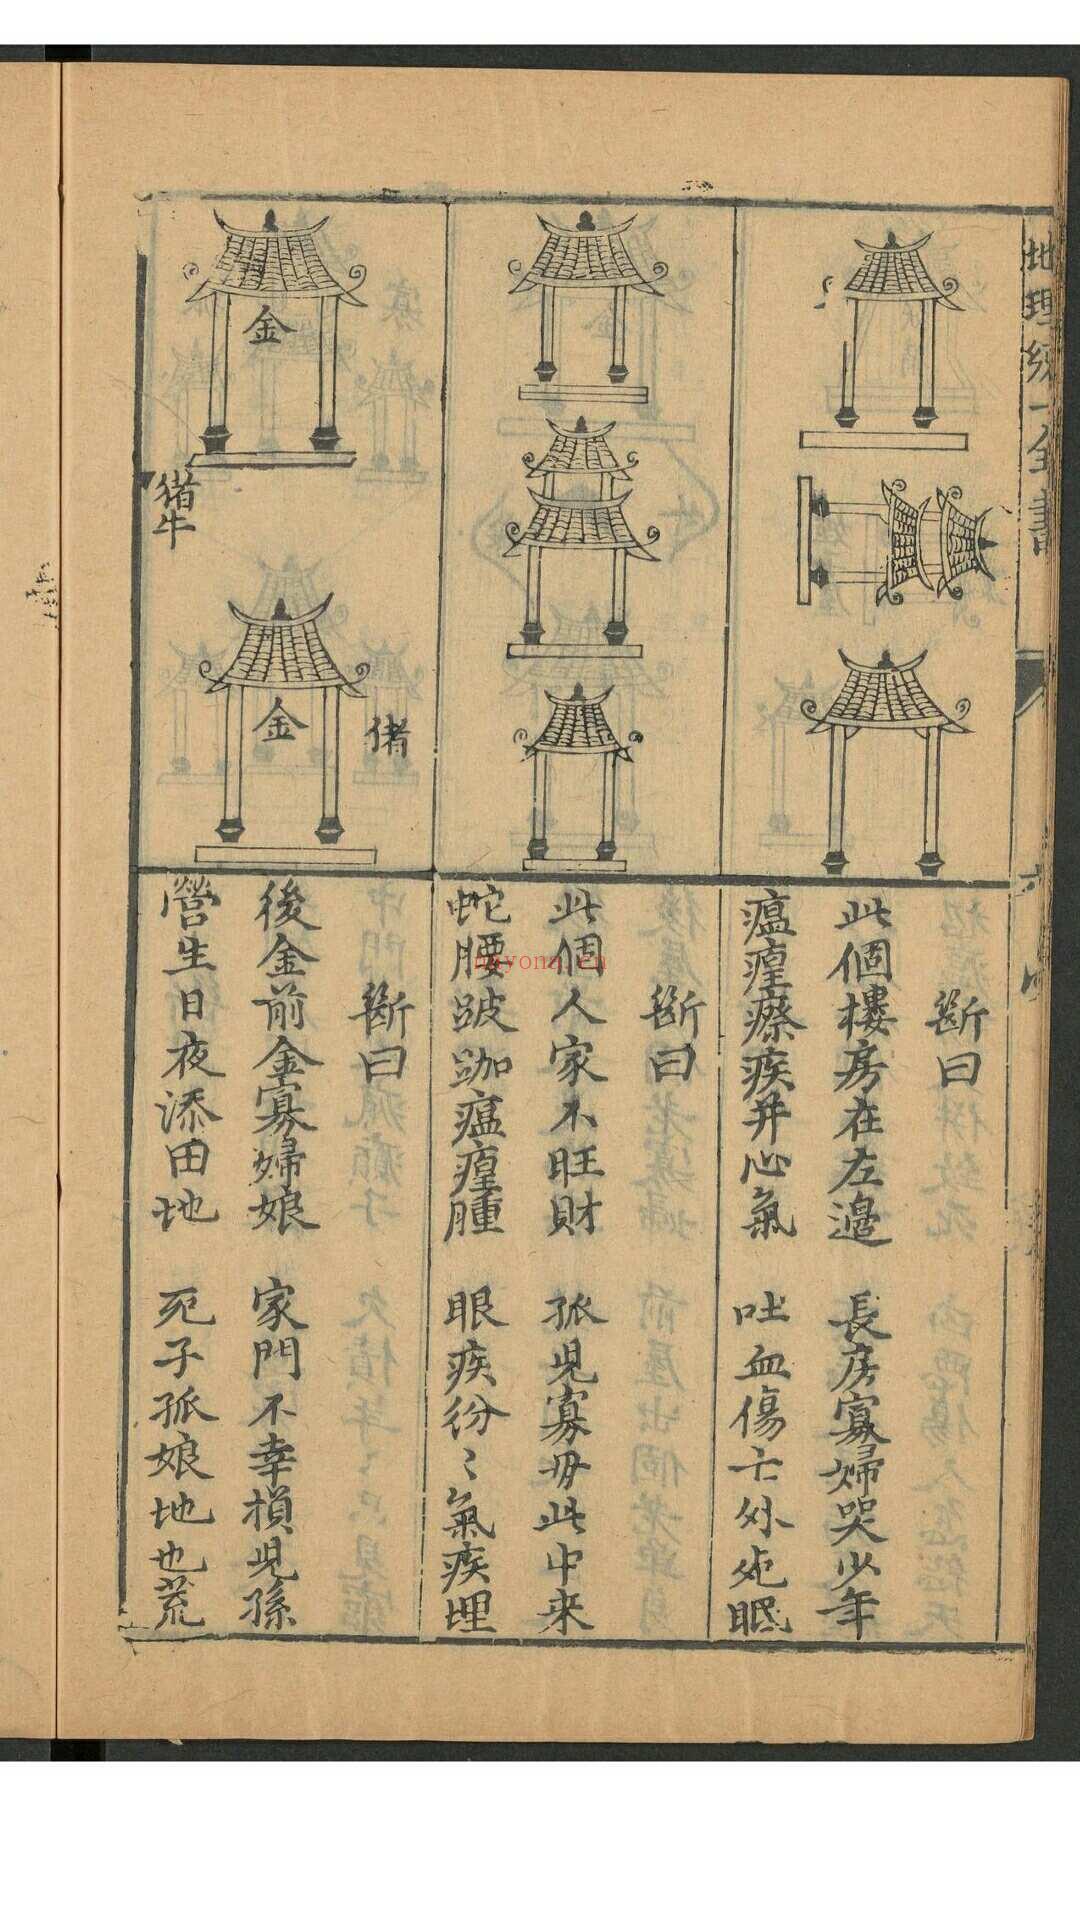 地理統一全書
金
金
猪
猪牛
斷曰
此個樓房在左邉
長房寡婦哭少年
瘟瘽瘵疾并心氣
吐血傷亡外処眠
斷曰
此個人家不旺財
孤児寡毋此中来
蛇腰跛跏瘟瘽腫
眼疾份〻氣疾埋
斷曰
後金前金寡婦娘
家門不幸損児孫
營生日夜添田地
死子孤娘地也荒
nayona.cn